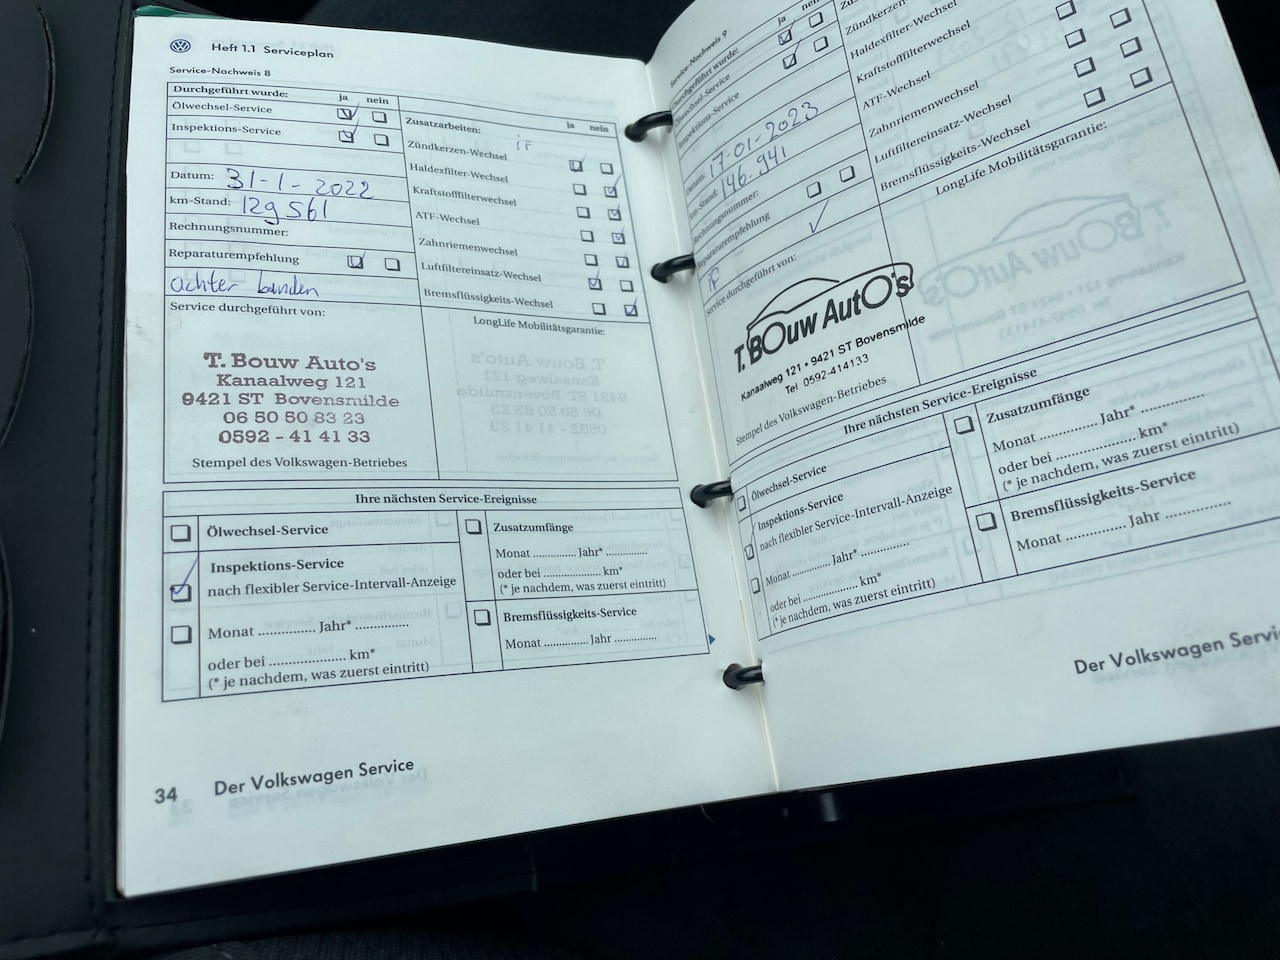 Heft 1.1 Serviceplan
Service-Nachweis 8
Durchgeführt wurde: ja nein
Ölwechsel-Service
Inspektions-Service
Datum: 31-1-2022
km-Stand: 129561
Rechnungsnummer:
Reparaturempfehlung
achter banden
Zusatzarbeiten: ja nein
Zündkerzen-Wechsel
Haldexfilter-Wechsel
Kraftstofffilterwechsel
ATF-Wechsel
Zahnriemenwechsel
Luftfiltereinsatz-Wechsel
Bremsflüssigkeits-Wechsel
Service durchgeführt von:
LongLife Mobilitätsgarantie:
T. Bouw Auto's
Kanaalweg 121
9421 ST Bovensmilde
06 50 50 83 23
0592 - 41 41 33
Stempel des Volkswagen-Betriebes
Ihre nächsten Service-Ereignisse
Ölwechsel-Service
Inspektions-Service
nach flexibler Service-Intervall-Anzeige
Monat .............. Jahr* .............
oder bei .................... km*
(* je nachdem, was zuerst eintritt)
Zusatzumfänge
Monat ............ Jahr* ............
oder bei .................... km*
(* je nachdem, was zuerst eintritt)
Bremsflüssigkeits-Service
Monat ............ Jahr ............
34 Der Volkswagen Service
Service-Nachweis 9
Durchgeführt wurde: ja
Ölwechsel-Service
Inspektions-Service
Datum: 17-01-2023
km-Stand: 146.941
Rechnungsnummer:
Reparaturempfehlung
Zündkerzen-Wechsel
Haldexfilter-Wechsel
Kraftstofffilterwechsel
ATF-Wechsel
Zahnriemenwechsel
Luftfiltereinsatz-Wechsel
Bremsflüssigkeits-Wechsel
Service durchgeführt von:
LongLife Mobilitätsgarantie:
T. BOuw AutO's
Kanaalweg 121 • 9421 ST Bovensmilde
Tel 0592-414133
Stempel des Volkswagen-Betriebes
Ihre nächsten Service-Ereignisse
Ölwechsel-Service
Inspektions-Service
nach flexibler Service-Intervall-Anzeige
Monat .............. Jahr* .............
oder bei .................... km*
(* je nachdem, was zuerst eintritt)
Zusatzumfänge
Monat .............. Jahr* ................
oder bei .................... km*
(* je nachdem, was zuerst eintritt)
Bremsflüssigkeits-Service
Monat .............. Jahr ................
Der Volkswagen Servi